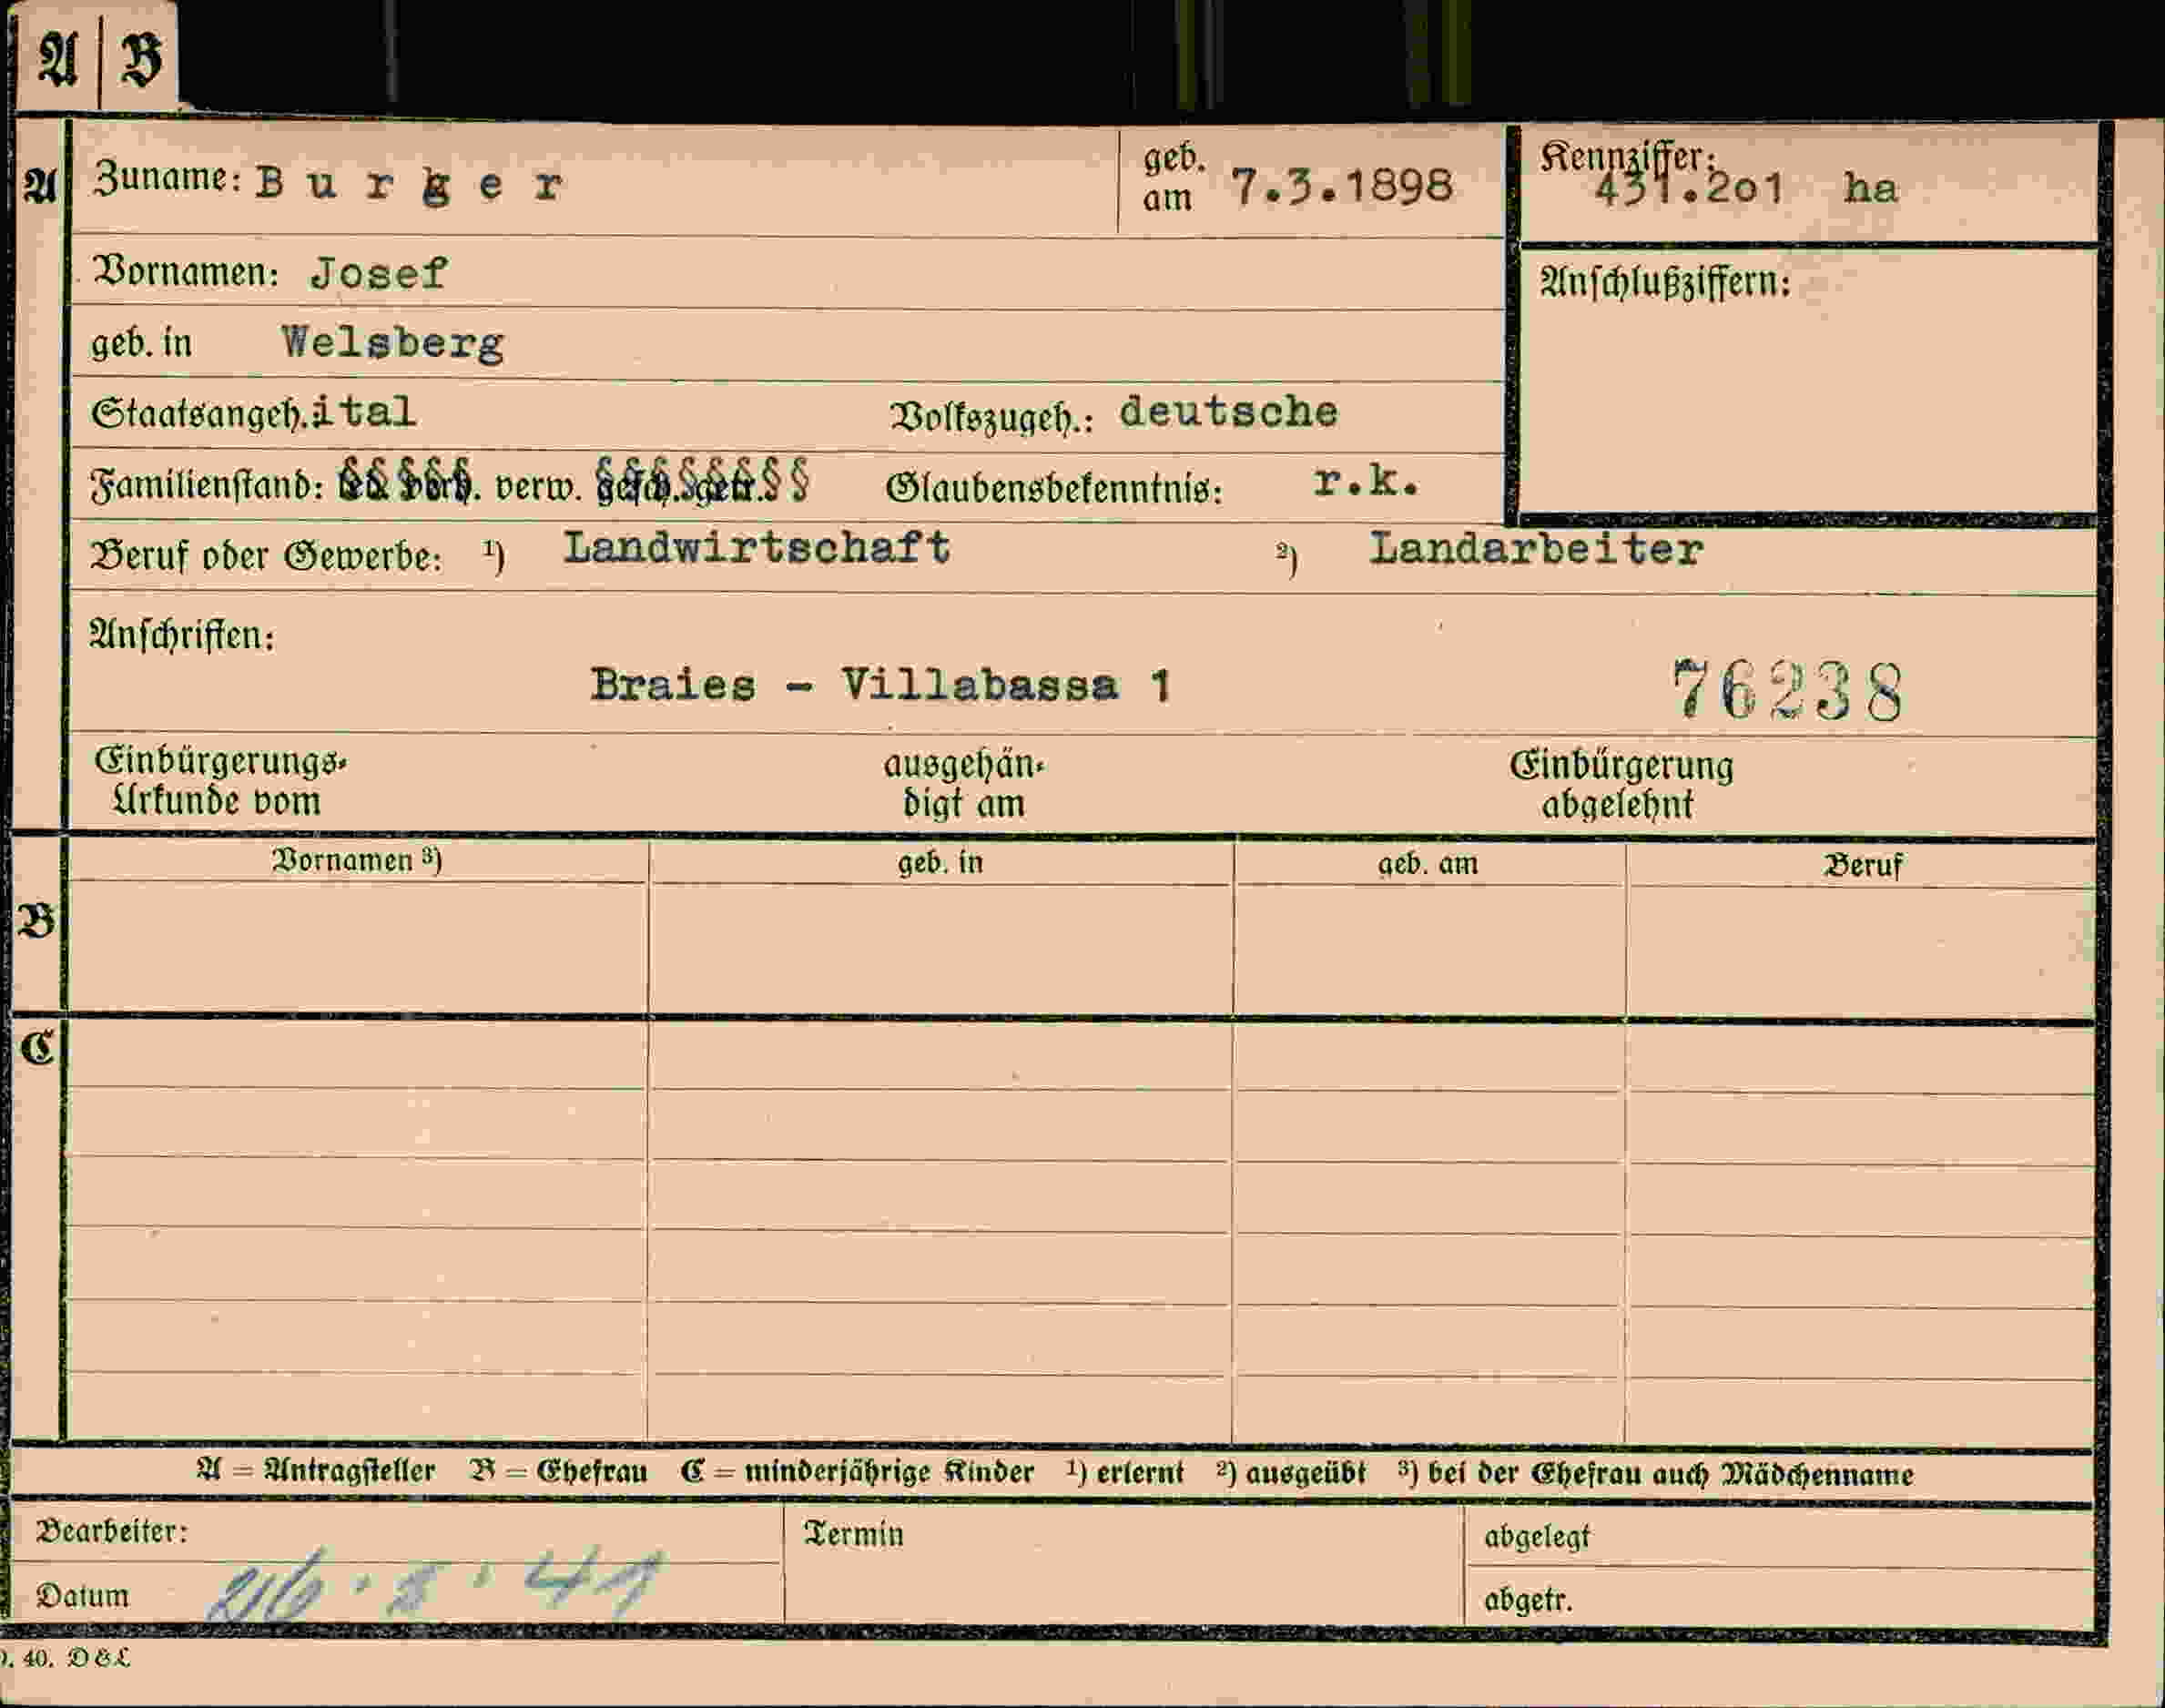 A | B
A Zuname: Burger geb. am 7.3.1898 Kennziffer: 431.2o1 ha
Vornamen: Josef Anschlußziffern:
geb. in Welsberg
Staatsangeh. ital Volkszugeh.: deutsche
Familienstand: led. verh. verw. gesch. getr. Glaubensbekenntnis: r.k.
Beruf oder Gewerbe: 1) Landwirtschaft 2) Landarbeiter
Anschriften:
Braies - Villabassa 1 76238
Einbürgerungs- ausgehän- Einbürgerung
Urkunde vom digt am abgelehnt
Vornamen 3) geb. in geb. am Beruf
B
C
A = Antragsteller B = Ehefrau C = minderjährige Kinder 1) erlernt 2) ausgeübt 3) bei der Ehefrau auch Mädchenname
Bearbeiter: Termin abgelegt
Datum abgetr.
40. D & L